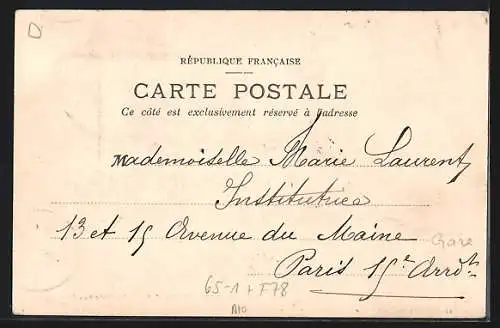 D
RÉPUBLIQUE FRANÇAISE
CARTE POSTALE
Ce côté est exclusivement réservé à l'adresse
Mademoiselle Marie Laurent
Institutrice
13 et 15 Avenue du Maine
Gare
Paris 15e Arrdt
65-1 + F78
A10